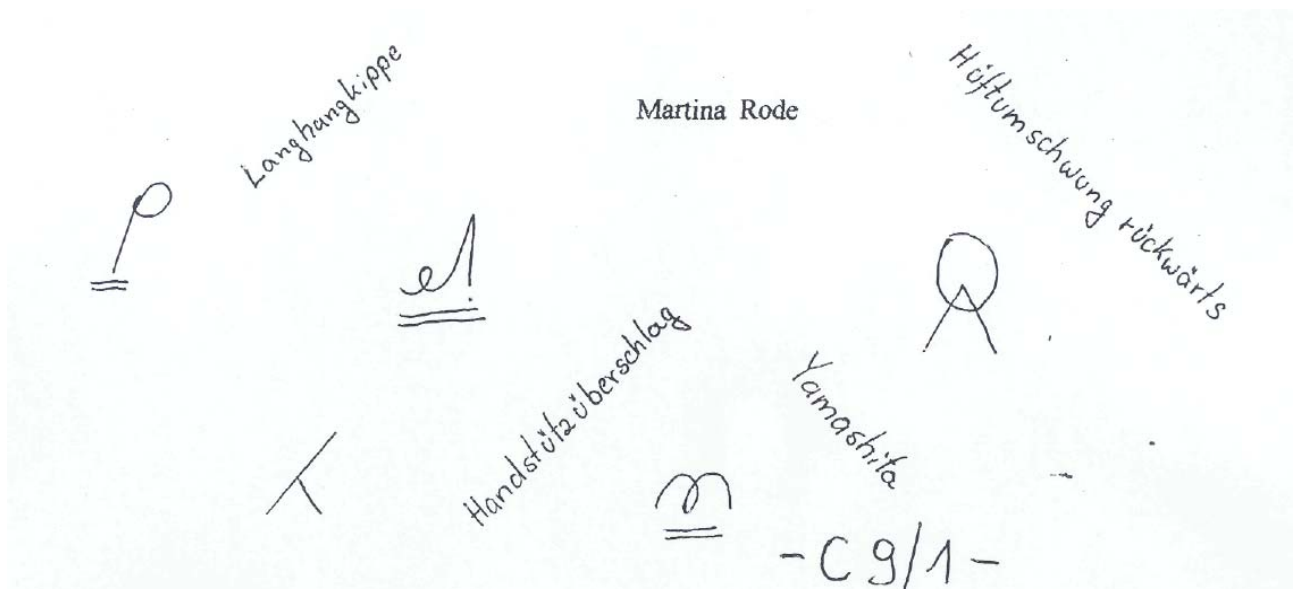 Langhangkippe
Martina Rode
Hüftumschwung rückwärts
Handstützüberschlag
Yamashita
-C9/1-